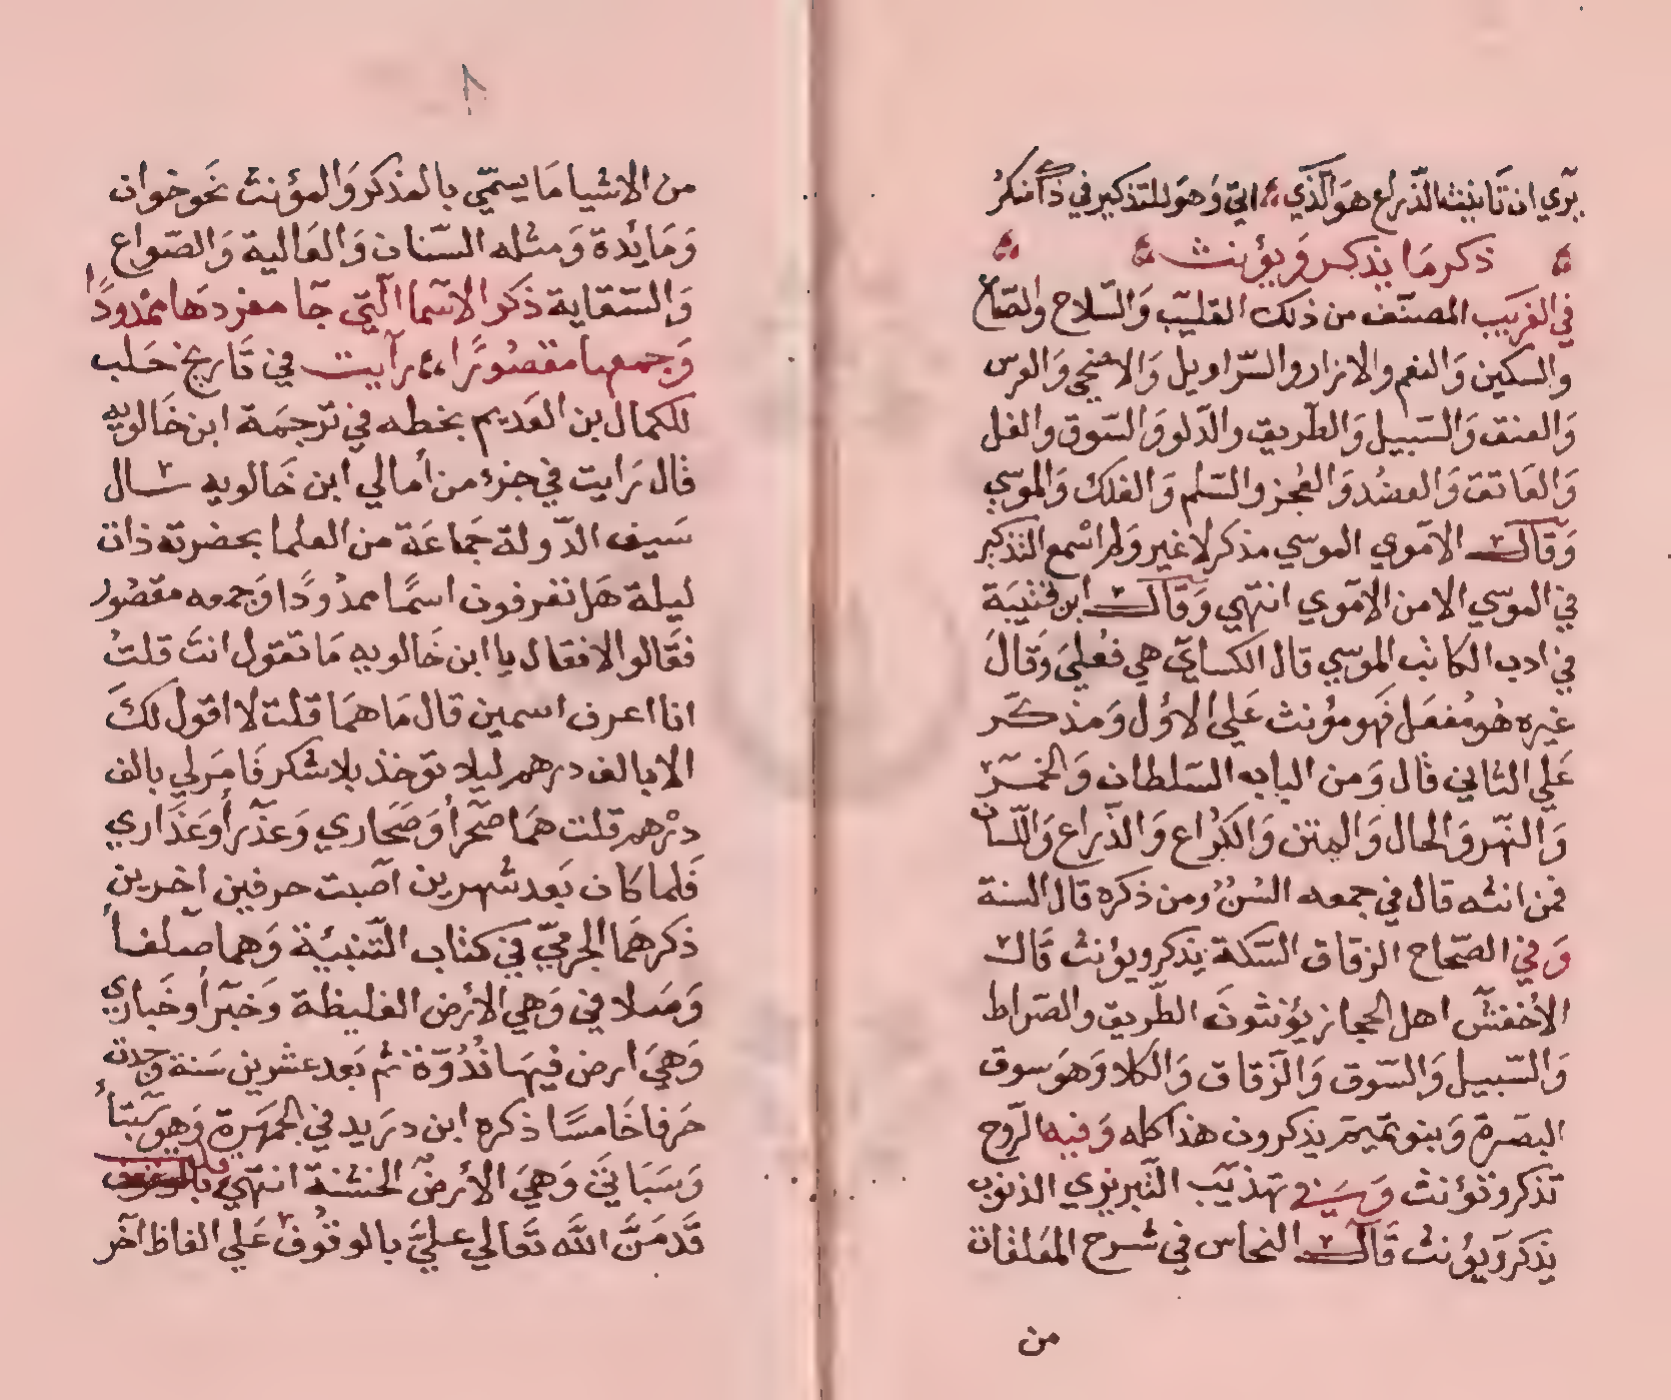 يرى ان تانيث الذراع هو الذي ابي وهو للتذكير في ذا منكر
ذكر ما يذكر ويؤنث
في الغريب المصنف من ذلك القليب والسلاح والصاع
والسكين والنعم والازار والسراويل والاضحي والعرس
والعنق والسبيل والطريق والدلو والسوق والغل
والعاتق والعضد والعجز والسلم والفلك والموسي
وقال الاموي الموسي مذكر لا غير ولم اسمع التذكير
في الموسي الا من الاموي انتهي وقال ابن قتيبة
في ادب الكاتب الموسي قال الكساي هي فعلي وقال
غيره هو مفعل فهو مؤنث علي الاول ومذكر
علي الثاني قال ومن الباب السلطان والخمر
والنهر والحال والمتن والكراع والذراع واللسان
فمن انثه قال في جمعه السن ومن ذكره قال السنة
وفي الصحاح الزقاق السكة يذكر ويؤنث قال
الأخفش اهل الحجاز يؤنثون الطريق والصراط
والسبيل والسوق والزقاق والكلا وهو سوق
البصرة وبنو تميم يذكرون هذا كله وفيه الروح
تذكر وتؤنث وفي تهذيب التبريزي الذنوب
يذكر ويؤنث قال النحاس في شرح المعلقات
من
٨
من الاشيا ما يسمي بالمذكر والمؤنث نحو خوان
ومائدة ومثله السنان والعالية والصواع
والسقاية ذكر الاسما التي جا مفردها ممدودا
وجمعها مقصورا رايت في تاريخ حلب
للكمال بن العديم بخطه في ترجمة ابن خالويه
قال رايت في جزء من أمالي ابن خالويه سال
سيف الدولة جماعة من العلما بحضرته ذات
ليلة هل تعرفون اسما ممدودا وجمعه مقصور
فقالوا لا فقال يا ابن خالويه ما تقول انت قلت
انا اعرف اسمين قال ما هما قلت لا اقول لك
الا بالف درهم ليلا توخذ بلا شكر فامر لي بالف
درهم قلت هما صحرا وصحاري وعذرا وعذاري
فلما كان بعد شهرين اصبت حرفين اخرين
ذكرهما الجرمي في كتاب التنبيه وهما صلفا
وصلافي وهي الأرض الغليظة وخبرا وخباري
وهي ارض فيها ندوة ثم بعد عشرين سنة وجدت
حرفا خامسا ذكره ابن دريد في الجمهرة وهو سبتا
وسباتي وهي الأرض الخشنة انتهي قلت
قد من الله تعالي علي بالوقوف علي الفاظ آخر